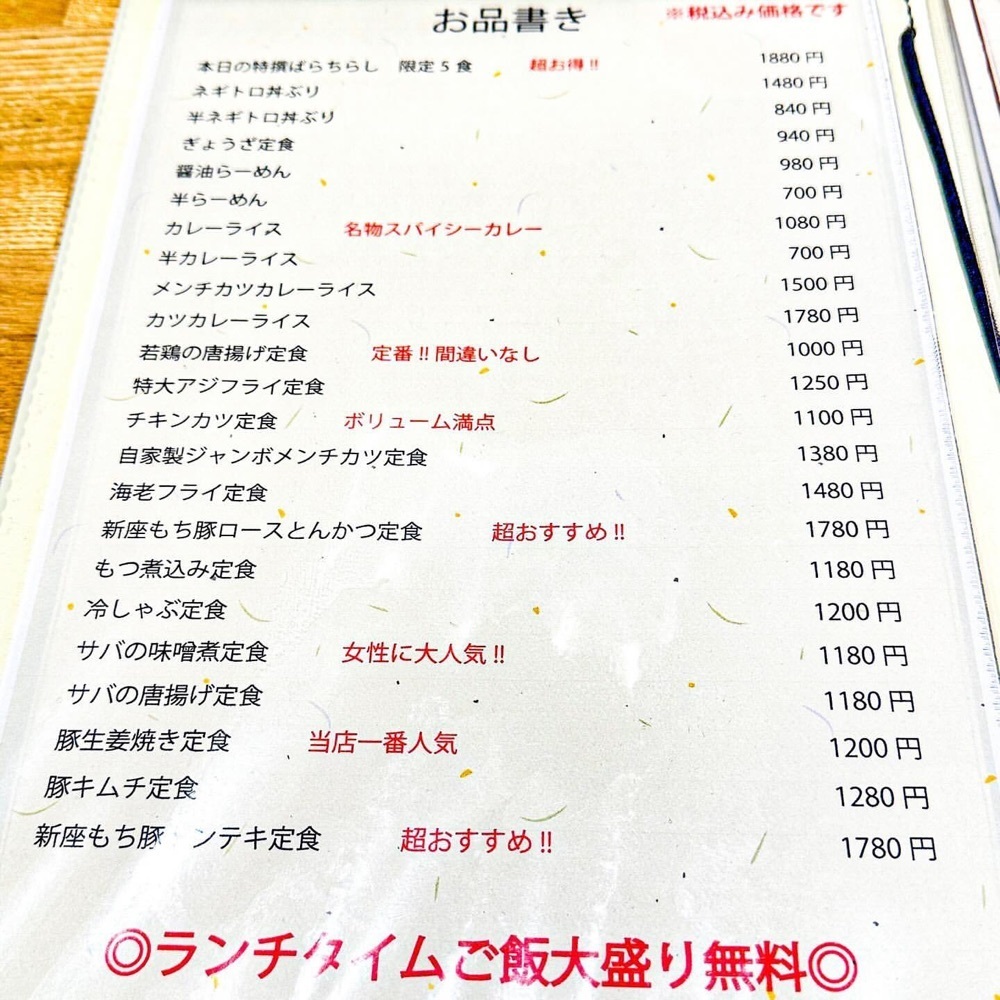 お品書き ※税込み価格です
本日の特撰ばらちらし 限定5食 超お得!! 1880円
ネギトロ丼ぶり 1480円
半ネギトロ丼ぶり 840円
ぎょうざ定食 940円
醤油らーめん 980円
半らーめん 700円
カレーライス 名物スパイシーカレー 1080円
半カレーライス 700円
メンチカツカレーライス 1500円
カツカレーライス 1780円
若鶏の唐揚げ定食 定番!!間違いなし 1000円
特大アジフライ定食 1250円
チキンカツ定食 ボリューム満点 1100円
自家製ジャンボメンチカツ定食 1380円
海老フライ定食 1480円
新座もち豚ロースとんかつ定食 超おすすめ!! 1780円
もつ煮込み定食 1180円
冷しゃぶ定食 1200円
サバの味噌煮定食 女性に大人気!! 1180円
サバの唐揚げ定食 1180円
豚生姜焼き定食 当店一番人気 1200円
豚キムチ定食 1280円
新座もち豚 ンテキ定食 超おすすめ!! 1780円
◎ランチタイムご飯大盛り無料◎